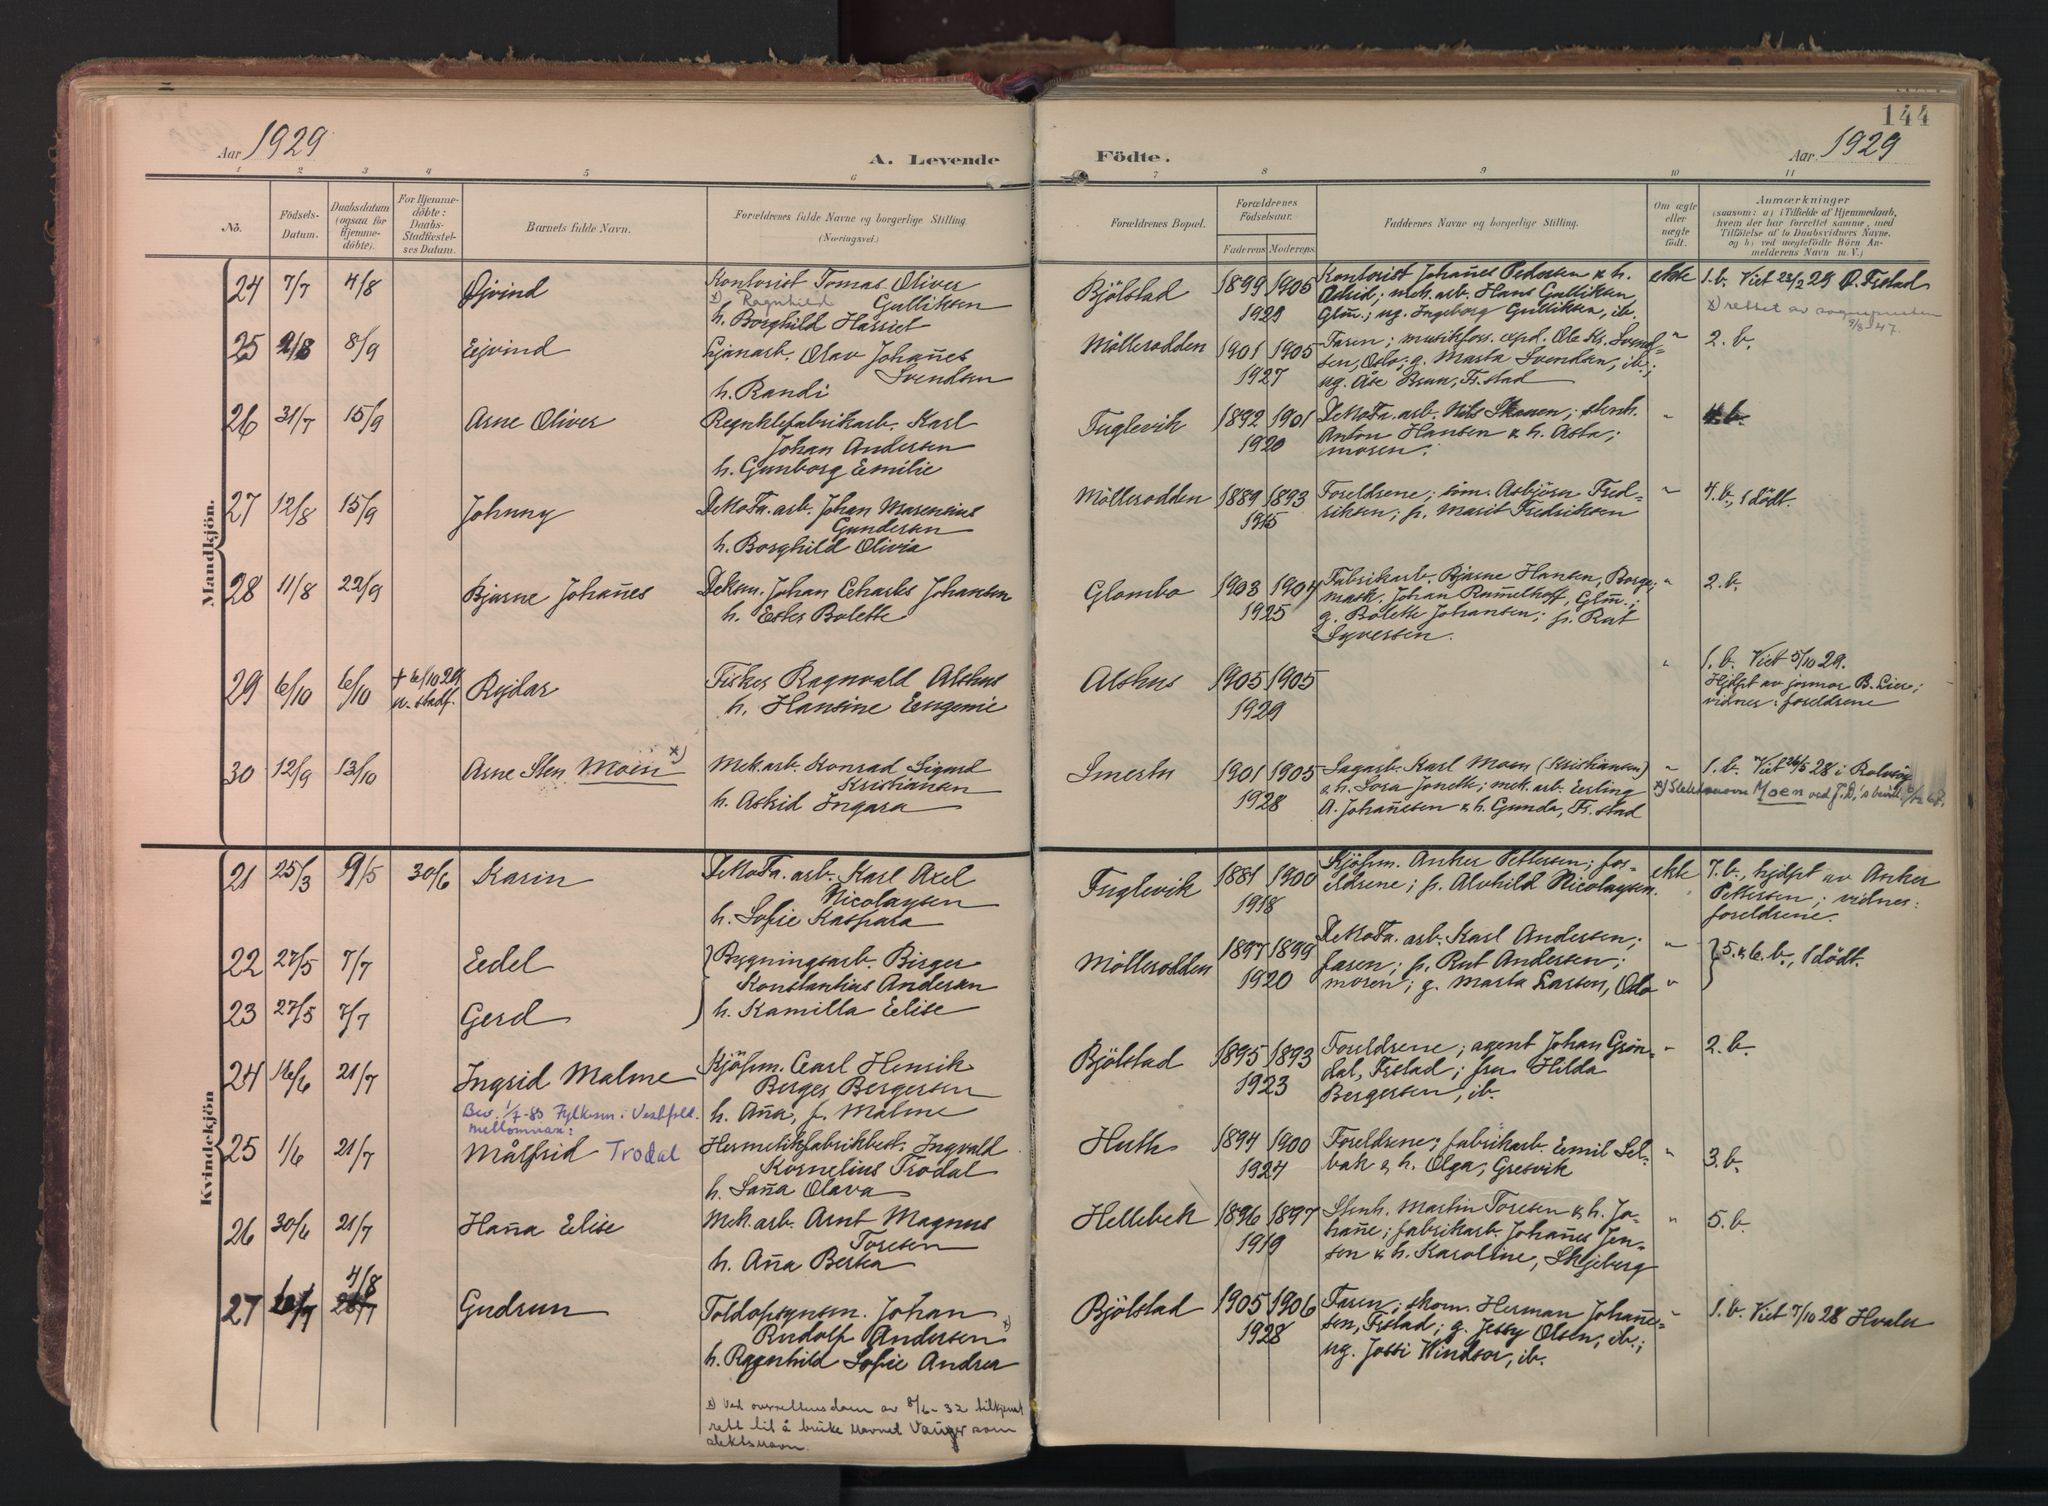 144
Aar 1929
A. Levende
Födte.
Aar 1929
1 2 3 4 5 6 7 8 9 10 11
No.
Födsels-
Datum.
Daabsdatum
(ogsaa for
Hjemme-
döbte).
For Hjemme-
döbte:
Daabs-
Stadfæstel-
ses Datum.
Barnets fulde Navn.
Forældrenes fulde Navne og borgerlige Stilling.
(Næringsvei.)
Forældrenes Bopæl.
Forældrenes
Födselsaar.
Faderens Moderens.
Faddernes Navne og borgerlige Stilling.
Om ægte
eller
uægte
födt.
Anmærkninger
(saasom: a) i Tilfælde af Hjemmedaab,
hvem der har forrettet samme, med
Tilföielse af to Daabsvidners Navne,
og b) ved uægtefödte Börn An-
melderens Navn m. V.)
Mandkjön.
24 7/7 4/8 Øjvind
Kontorist Tomas Oliver
x) Ragnhild Gulliksen
h. Borghild Harriet
Bjölstad
1899 1905
1929
Kontorist Johañes Pedersen & h.
Astrid; mek. arb. Hans Gulliksen,
Glm.; ug. Ingeborg Gulliksen, ib.
ekte
1. b. Viet 23/2 29 Ø. Frstad
x) rettet av sognepresten
9/8-47.
25 2/8 8/9 Ejvind
Olav Johañes
Svendsen
h. Randi
Möllerodden
1901 1905
1927
Faren; musikforr. expd. Ole Kr. Svend-
sen, Oslo; g. Marta Svendsen, ib.;
ug. Åse Brun, Fr.stad
"
2. b.
26 31/7 15/9 Arne Oliver
Regnklefabrikarb. Karl
Johan Andersen
h. Gunborg Emilie
Fuglevik
1892 1901
1920
DeNoFa. arb. Nils Skaaen; stenh.
Anton Hansen & h. Asta;
moren.
"
4. b.
27 12/8 15/9 Johnny
DeNoFa. arb. Johan Marensius
Gundersen
h. Borghild Olivia
Möllerodden
1889 1893
1915
Foreldrene; sim. Asbjörn Fred-
riksen; p. Marit Fredriksen
"
4. b., 1 dödt.
28 11/8 22/9 Bjarne Johañes
Deksm. Johan Charles Johansen
h. Ester Bolette
Glombo
1903 1904
1925
Fabrikarb. Bjarne Hansen, Borge;
mask. Johan Ramelhoff, Glm.;
g. Bolette Johansen; p. Rut
Syversen.
"
2. b.
29 6/10 6/10 + 6/10 29
u. stadf.
Rejdar
Fisker Ragnvald Alshus
h. Hansine Eugenie
Alshus
1905 1905
1929
"
1. b. Viet 5/10 29.
Hjdpt av jormor B. Lier;
vidner: foreldrene
30 12/9 13/10 Arne Sten Moen x)
Mek. arb. Konrad Sigurd
Kristiansen
h. Astrid Ingara
Smertu
1901 1905
1928
Sagarb. Karl Moen (Kristiansen)
& h. Lora Jonette; mek. arb. Erling
A. Johañesen & h. Gunda, Fr.stad
"
1. b. Viet 26/5 28 i Rolvsöy
x) Slektsnavn Moen ved J.D.'s bevill.
Kvindekjön
21 25/3 9/5 30/6 Karin
DeNoFa. arb. Karl Axel
Nicolaysen
h. Sofie Kaspara
Fuglevik
1881 1900
1918
Kjöpm. Anker Pettersen; for-
eldrene; p. Alvhild Nicolaysen.
ekte
7. b., hjdpt av Anker
Pettersen; vidner:
foreldrene.
22 27/5 7/7 Edel
Bygningsarb. Birger
Konstantius Andersen
23 27/5 7/7 Gerd
h. Kamilla Elise
Möllerodden
1897 1899
1920
DeNoFa. arb. Karl Andersen;
faren; p. Rut Andersen;
moren; g. Marta Larsen, Oslo
"
"
5. & 6. b., 1 dödt.
24 16/6 21/7 Ingrid Malme
Kjöpm. Carl Henrik
Berger Bergersen
h. Aña, f. Malme
Bjölstad
1895 1893
1923
Foreldrene; agent Johan Grön-
dal, Frstad; fru Hilda
Bergersen, ib.
"
2. b.
Bev. 1/7-85 Fylkesm. i Vestfold
mellomnavn:
25 1/6 21/7 Målfrid Trodal
Hermetikfabrikbest. Ingvald
Kornelius Trodal
h. Saña Olava
Huth
1894 1900
1924
Foreldrene; fabrikarb. Emil Sel-
bak & h. Olga, Gresvik
"
3. b.
26 30/6 21/7 Haña Elise
Mek. arb. Arnt Magnus
Toresen
h. Aña Berta
Hellebek
1896 1897
1919
Stenh. Martin Toresen & h. Jo-
hañe; fabrikarb. Johañes Jen-
sen & h. Karoline, Skjeberg
"
5. b.
27 4/8
28/7
Gudrun
Toldopsynsm. Johan
Rudolf Andersen x)
h. Ragnhild Sofie Andrea
Bjölstad
1905 1906
1928
Faren; skom. Herman Johañe-
sen, Frstad; g. Jessy Olsen, ib.;
ug. Jossi Windsor, ib.
"
1. b. Viet 7/10 28 Hvaler
x) Ved overrettensdom av 8/6-32 tilkjennt
rett til å bruke navnet Vauger som
slektsnavn.